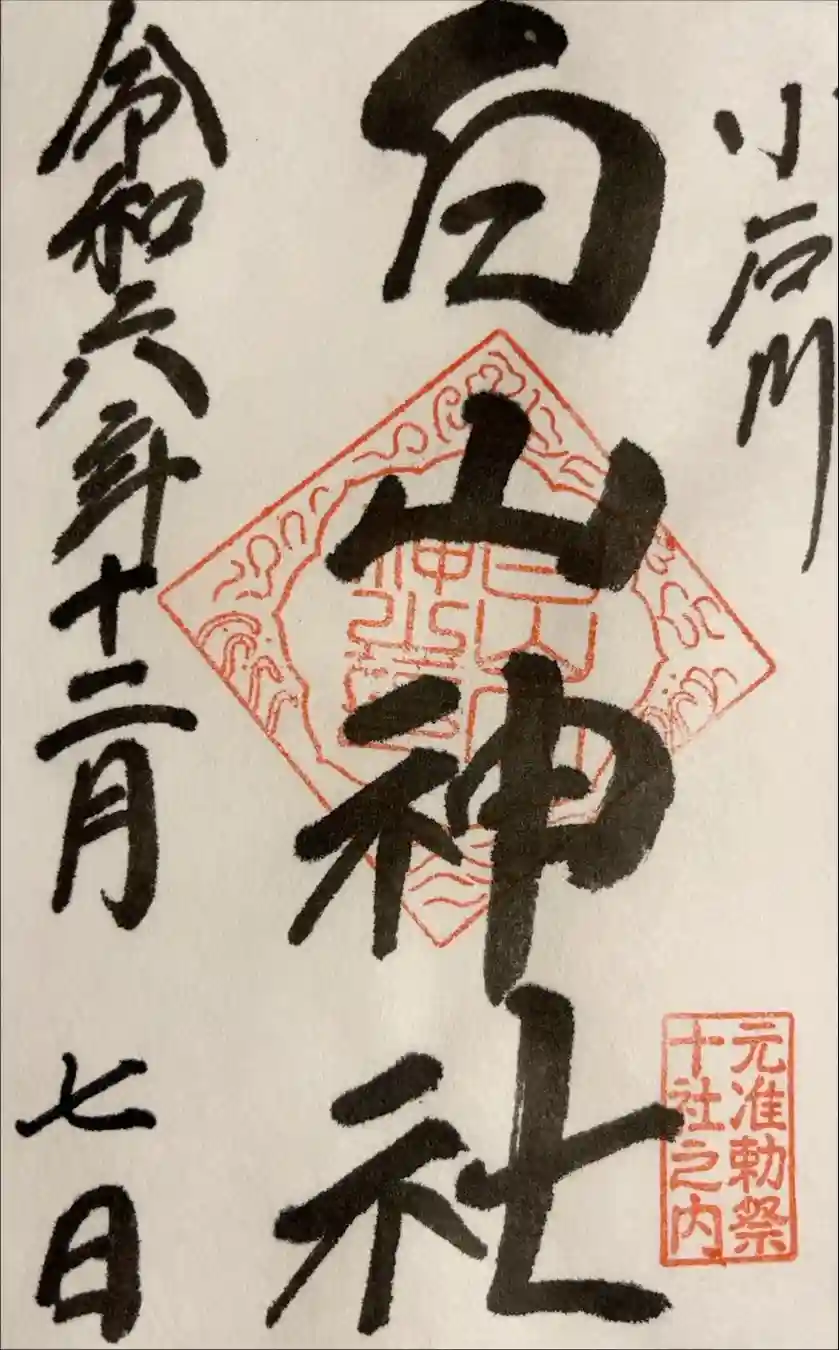 小石川
白山神社
令和六年十二月七日
元准勅祭
十社之内